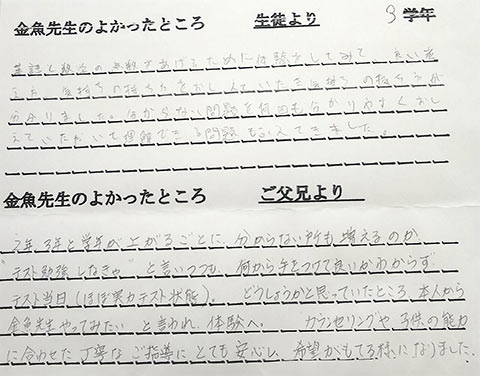 金魚先生のよかったところ 生徒より 3 学年
英語と数学の点数をあげるために体験をしてみて、良い意
分かりました。分からない問題を何回も分かりやすくおし
えていただいて理解できる問題もふえてきました。
金魚先生のよかったところ ご父兄より
2年 3年と学年が上がるごとに、分からない所も増えるのか
"テスト勉強しなきゃ" と言いつつも、何から手をつけて良いかわからず
テスト当日(ほぼ実力テスト状態)。 どうしようかと思っていたところ、本人から
金魚先生やってみたい と言われ、体験へ。 カウンセリングや、子供の能力
に合わせた丁寧なご指導にとても安心し、希望がもてる様になりました。